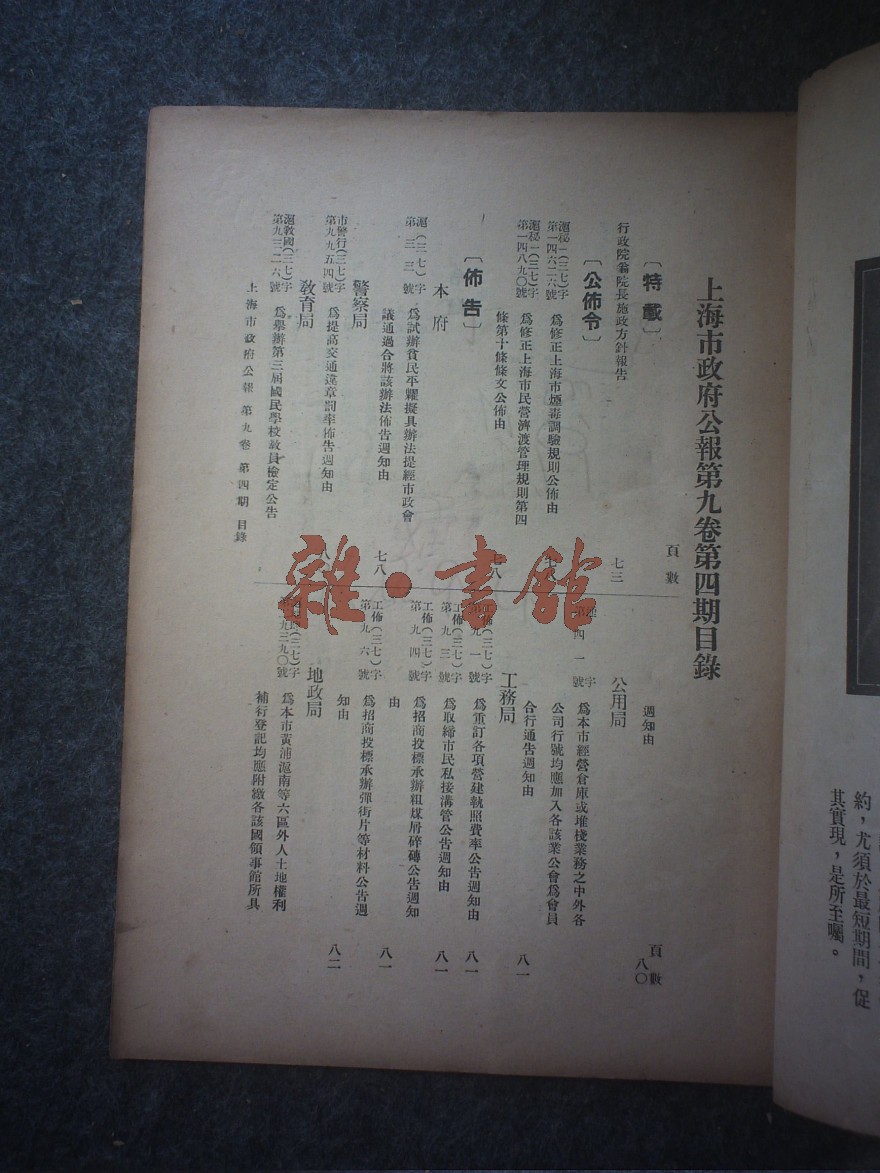 上海市政府公報第九卷第四期目錄
頁數
〔特載〕
行政院翁院長施政方針報告
七三
〔公佈令〕
滬秘一(三七)字
第一四六二六號
為修正上海市煙毒調驗規則公佈由
滬秘一(三七)字
第一四八九〇號
為修正上海市民營濟渡管理規則第四
條第十條條文公佈由
〔佈告〕
本府
滬(三七)字
第三三號
為試辦貧民平糶擬具辦法提經市政會
議通過合將該辦法佈告週知由
七八
警察局
市警行(三七)字
第九九五四號
為提高交通違章罰率佈告週知由
教育局
滬教國(三七)字
第九三二一六號
為舉辦第三屆國民學校教員檢定公告
上海市政府公報 第九卷 第四期 目錄
頁數
週知由
八〇
公用局
字
第四一號
為本市經營倉庫或堆棧業務之中外各
公司行號均應加入各該業公會為會員
合行通告週知由
八一
工務局
(三七)字
第九一號
為重訂各項營建執照費率公告週知由
八一
工佈(三七)字
第九三號
為取締市民私接溝管公告週知由
八一
工佈(三七)字
第九四號
為招商投標承辦粗煤屑碎磚公告週知
由
八一
工佈(三七)字
第九六號
為招商投標承辦彈街片等材料公告週
知由
八二
地政局
(三七)字
九三九〇號
為本市黃浦滬南等六區外人土地權利
補行登記均應附繳各該國領事館所具
約,尤須於最短期間,促
其實現,是所至囑。
雜·書館